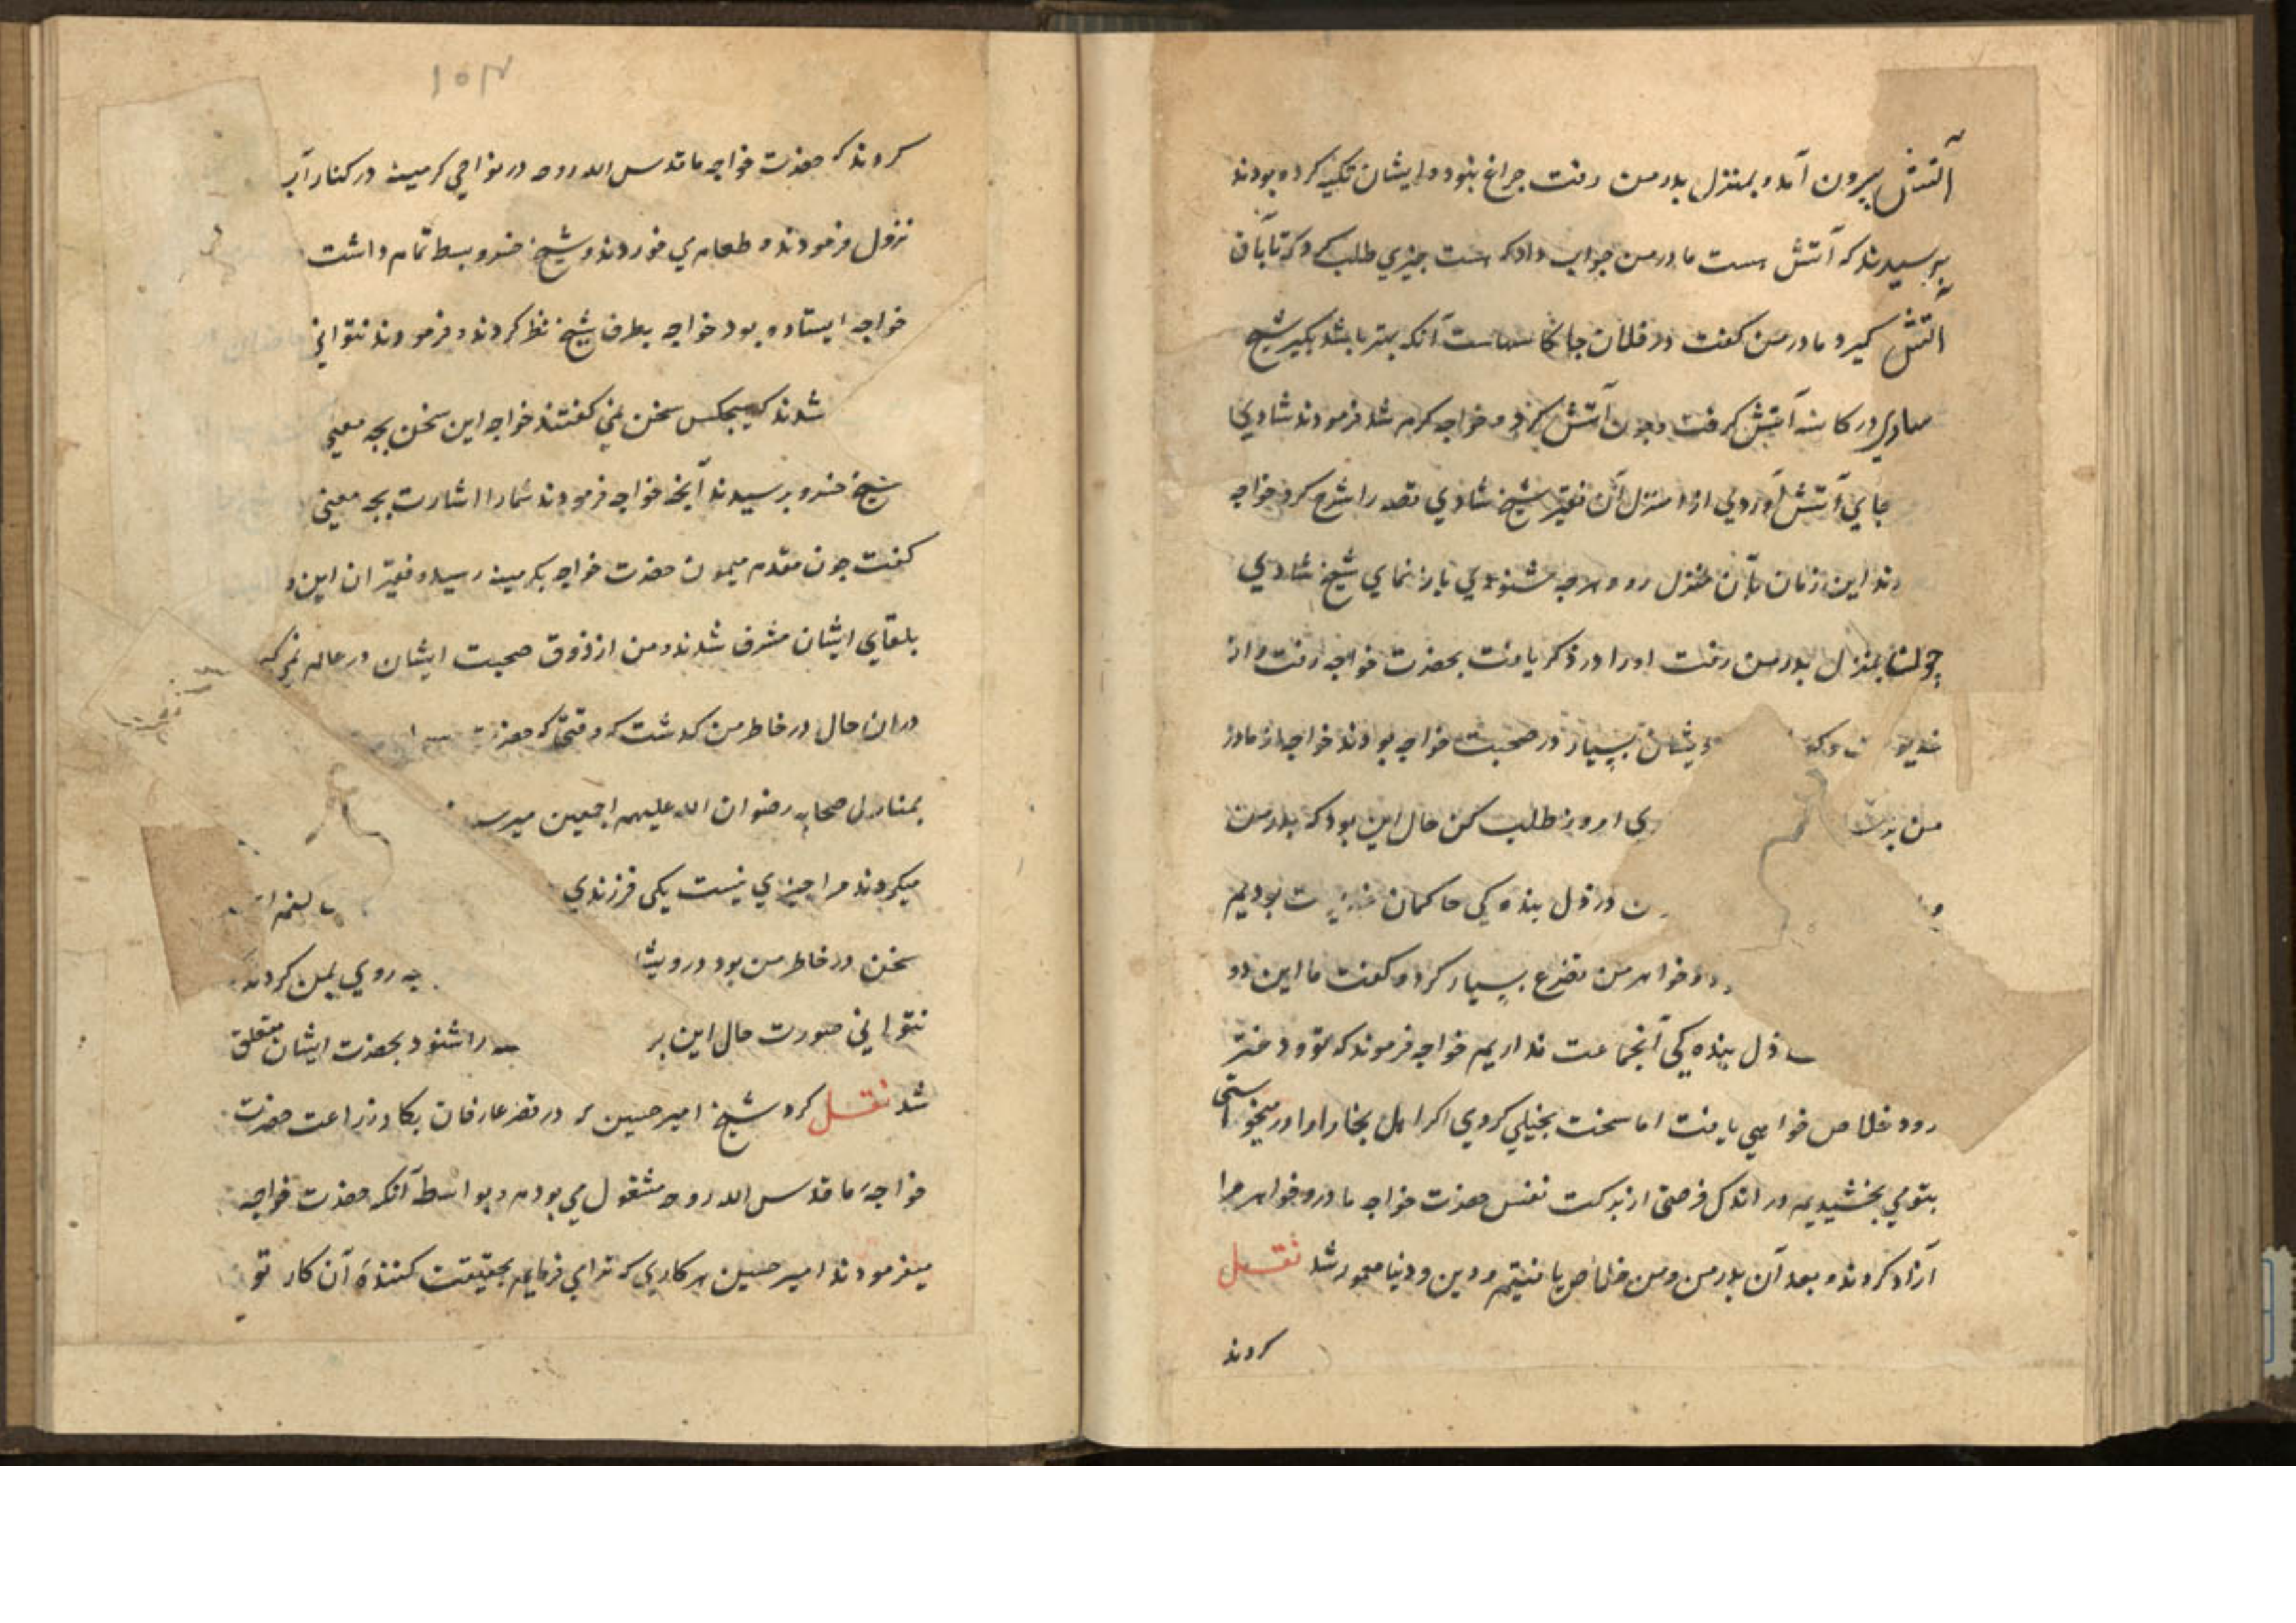 آتش بیرون آمد و بمنزل پدر من رفت چراغ نبود و ایشان تکیه کرده بودند
پرسیدند که آتش هست مادر من جواب داد که هست چیزی طلب کرد که تا بآن
آتش گیرد مادر من گفت در فلان جا کاسهاست آنکه بهتر باشد بگیر شیخ
شادی در کاسه آتش گرفت و چون آتش کرد و خواجه گرم شد فرمودند شادی
جای آتش آوردی از منزل آن فقیر شیخ شادی قصه را شرح کرد خواجه
این زمان بآن منزل رو و هرچه شنودی باز نمای شیخ شادی
چون بمنزل پدر من رفت او را در ذکر یافت بحضرت خواجه رفت و از
بسیار در صحبت خواجه بودند خواجه از مادر
من امروز طلب کن حال این بود که پدر من
در ذل بنده کی حاکمان بودیم
خواهر من تضرع بسیار کرد و گفت ما این دو
ذل بنده کی آنجماعت نداریم خواجه فرموند که تو و دختر
زود خلاص خواهی یافت اما سخت بخیلی کردی اگر اهل بخارا را درمیخواستی
بتو می بخشیدیم در اندک فرصتی از برکت نفس حضرت خواجه مادر و خواهر مرا
آزاد کردند و بعد آن پدر من و من خلاص یافتیم و دین و دنیا معمور شد نقل
کردند
۱۵۴
کردند که حضرت خواجه ما قدس الله روحه در نواحی کرمینه در کنار آب
نزول فرمودند و طعامی خوردند و شیخ خسرو بسط تمام داشت
خواجه ایستاده بود خواجه بطرف شیخ نظر کردند و فرمودند نتوانی
شدند که هیچکس سخن نمی گفتند خواجه این سخن بچه معنی
شیخ خسرو پرسیدند آنچه خواجه فرمودند شما را اشارت بچه معنی
گفت چون مقدم میمون حضرت خواجه بکرمینه رسید و فقیران این و
بلقای ایشان مشرف شدند و من از ذوق صحبت ایشان در عالم
در ان حال در خاطر من گذشت که وقتی که حضرت
بمنازل صحابه رضوان الله علیهم اجمعین میرسد
میکردند مرا چیزی نیست یکی فرزندی
سخن در خاطر من بود درویشا روی بمن کردند
نتوانی صورت حال این بر را شنود بحضرت ایشان متعلق
شد نقل کرد شیخ امیر حسین که در قصر عارفان بکار زراعت حضرت
خواجهٔ ما قدس الله روحه مشغول می بودم و بواسطه آنکه حضرت خواجه
میفرمودند امیر حسین هر کاری که ترا می فرمایم بحقیقت کنندهٔ آن کار تو